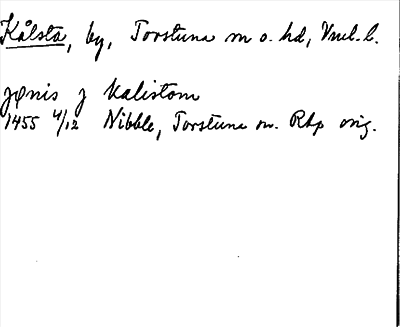 Kålsta, by, Torstuna sn o. hd, Vml. l.
jønis j kalistom
1455 4/12 Nibble, Torstuna sn. RAp orig.